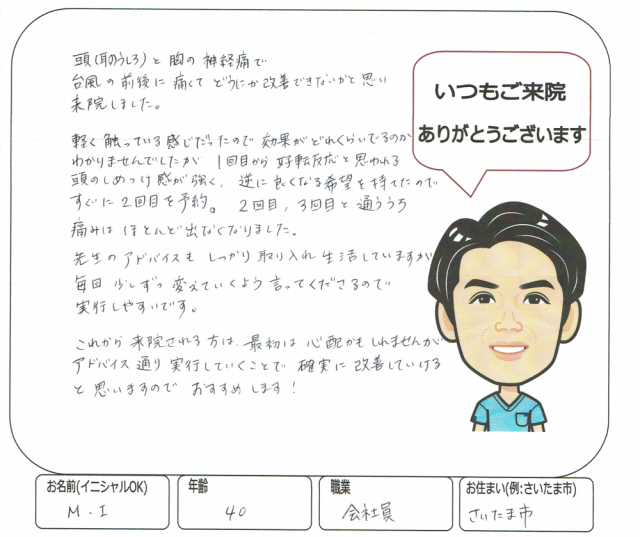 頭(耳のうしろ)と胸の神経痛で
台風の前後に痛くてどうにか改善できないかと思い
来院しました。
軽く触っている感じだったので効果がどれくらいでるのか
わかりませんでしたが1回目から好転反応と思われる
頭のしめつけ感が強く、逆に良くなる希望を持てたので
すぐに2回目を予約。2回目,3回目と通ううち
痛みはほとんど出なくなりました。
先生のアドバイスもしっかり取り入れ生活していますが
毎回少しずつ変えていくよう言ってくださるので
実行しやすいです。
これから来院される方は、最初は心配かもしれませんが
アドバイス通り実行していくことで確実に改善していける
と思いますのでおすすめします!
いつもご来院
ありがとうございます
お名前(イニシャルOK)
M.I
年齢
40
職業
会社員
お住まい(例:さいたま市)
さいたま市